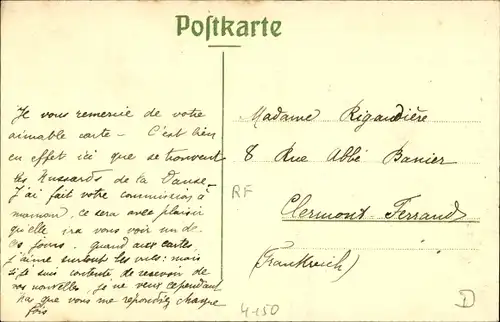 Postkarte
Je vous remercie de votre
aimable carte - C'est bien
en effet ici que se trouvent
les Hussards de la Danse -
J'ai fait votre commission à
maman, ce sera avec plaisir
qu'elle ira vous voir un de
ces jours. Quand aux cartes
j'aime surtout les vues: mais
si je suis contente de recevoir de
vos nouvelles, je ne veux cependant
pas que vous me répondiez chaque
fois
Madame Rigaudière
8 Rue Abbé Banier
Clermont-Ferrand
(Frankreich)
RF
4-150
D